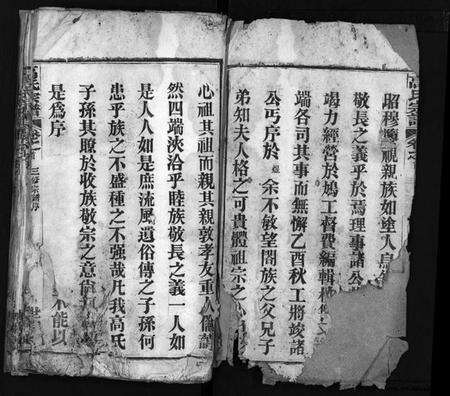 昭穆 視親族如塗人
敬長之義乎於焉理事諸公
竭力經營於鳩工督費編輯
端各司其事而無懈乙酉秋工將竣諸
公丐序於 余不敏望閤族之父兄子
弟知夫人格之可貴體祖宗之心
心祖其祖而親其親敦孝友重人倫
然四端浹洽乎睦族敬長之義一人如
是人人如是庶流風遺俗傳之子孫何
患乎族之不盛種之不强哉凡我高氏
子孫其曒於收族敬宗之意 不能以
是爲序
高氏宗譜
高氏宗譜